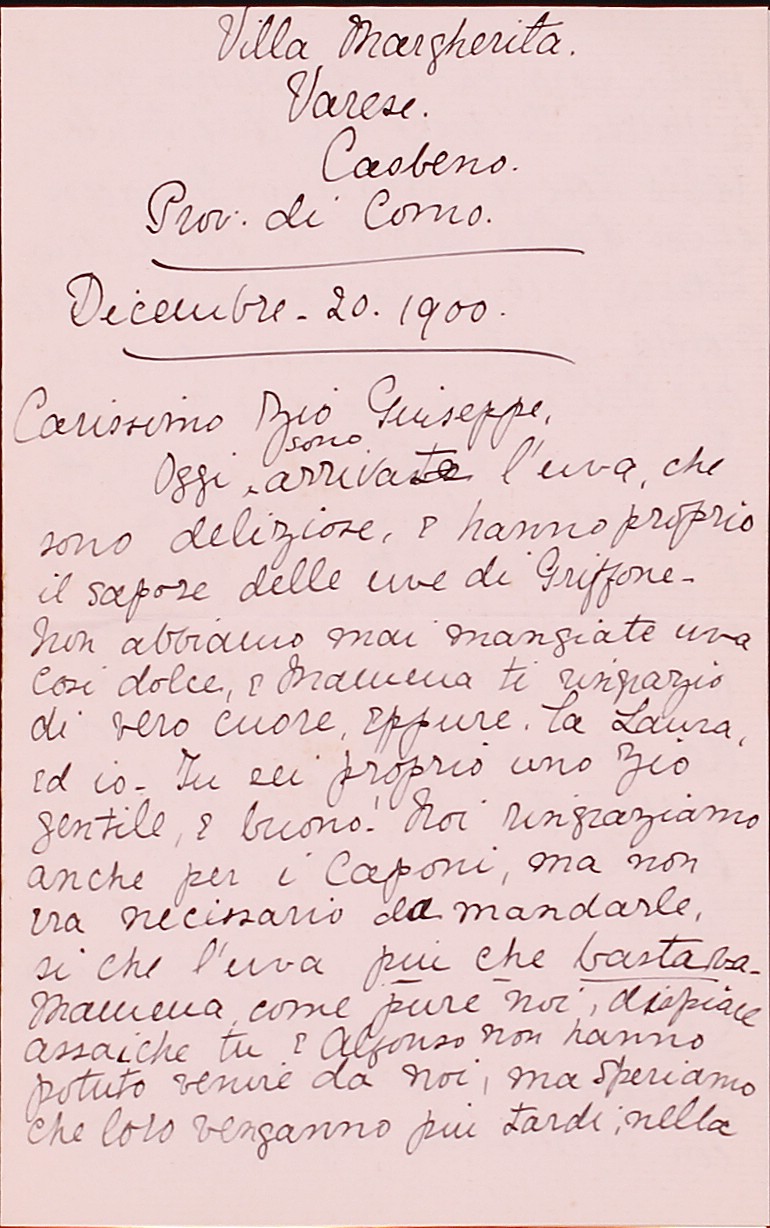 Villa Margherita.
Varese.
Casbeno.
Prov. di Como.
Dicembre - 20. 1900.
Carissimo Zio Giuseppe,
Oggi sono arrivate l'uva, che
sono deliziose, e hanno proprio
il sapore delle uve di Griffone -
Non abbiamo mai mangiate uva
cosi dolce, e Mamma ti ringrazio
di vero cuore, eppure. la Laura,
ed io - Tu sei proprio uno Zio
gentile, e buono! Noi ringraziamo
anche per i Caponi, ma non
era necissario da mandarle,
si che l'uva più che bastava -
Mamma, come pure noi, dispiace
assai che tu e Alfonso non hanno
potuto venire da noi, ma speriamo
che loro venganno piu tardi, nella